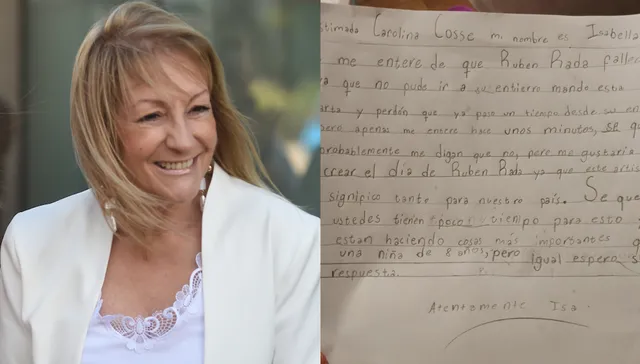 stimada Carolina Cosse mi nombre es Isabella
me entere de que Ruben Rada fallec
ya que no pude ir a su entierro mande esta
arta y perdón que ya paso un tiempo desde su en
pero apenas me entere hace unos minutos, se q
probablemente me digan que no, pero me gustaria
crear el dia de Ruben Rada ya que este artis
significo tante para nuestro país. Se que
ustedes tienen poco tiempo para esto y
estan haciendo cosas más importantes q
una niña de 8 años, pero igual espero s
respuesta.
Atentamente Isa.